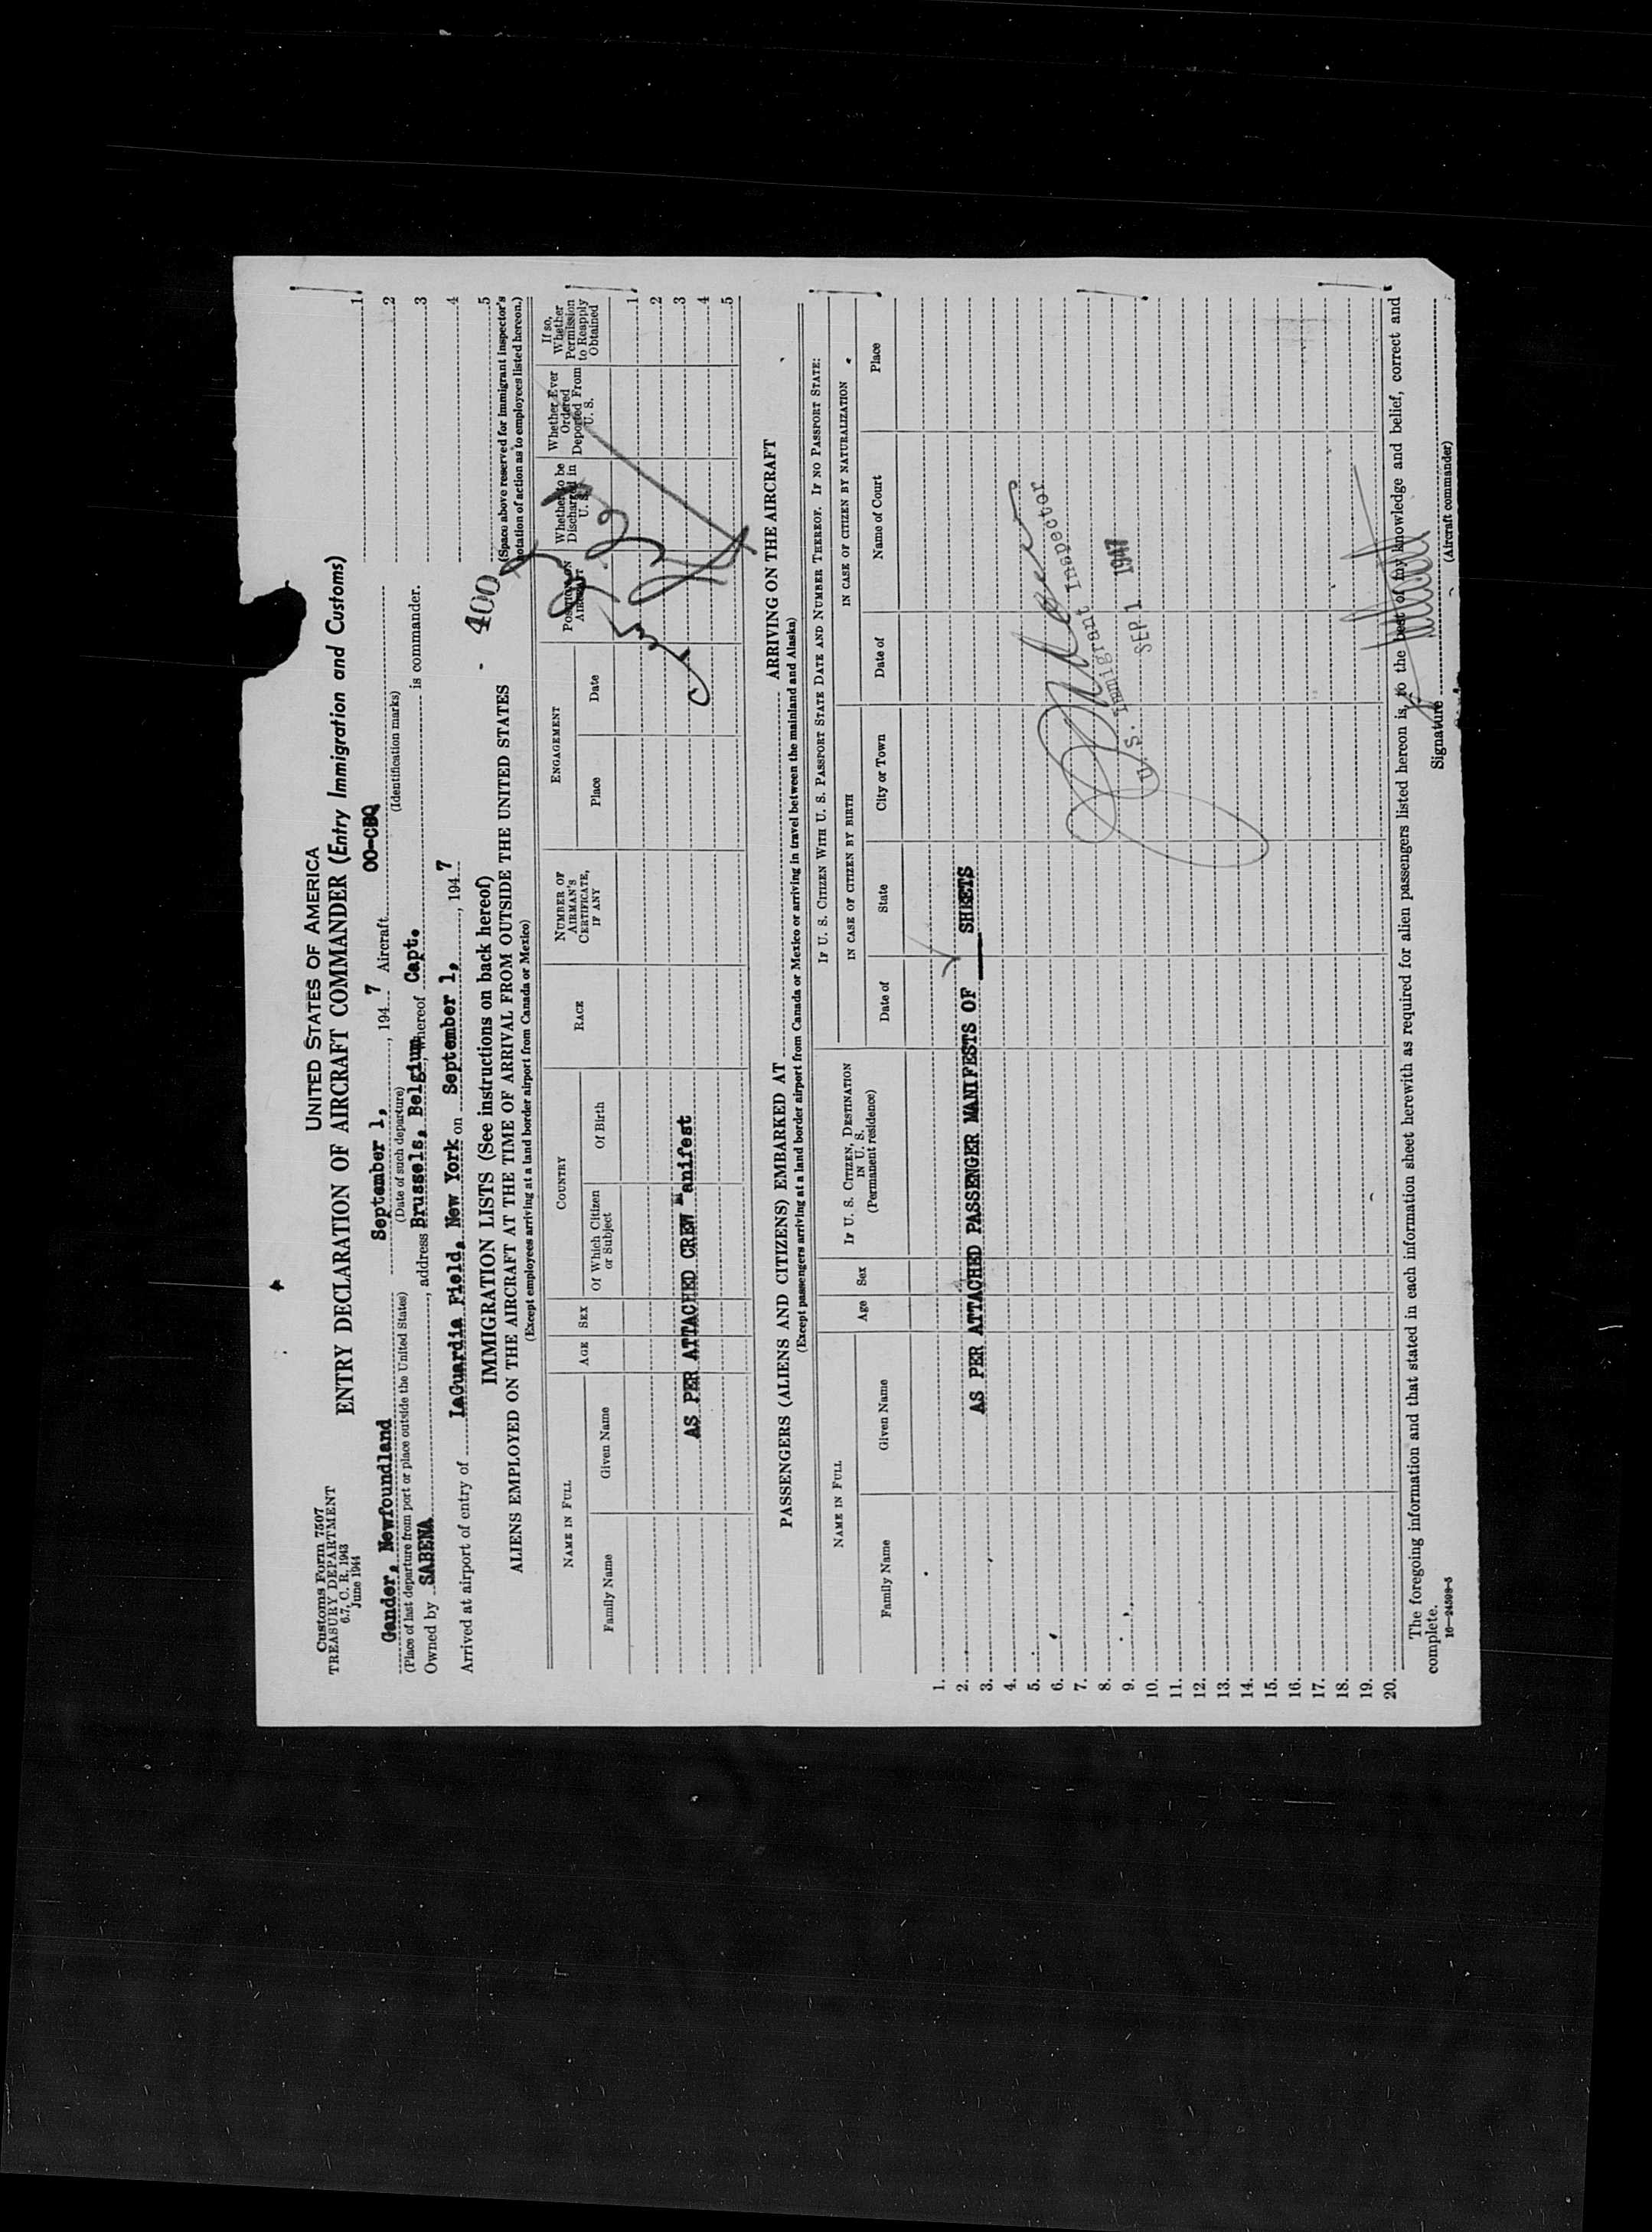 Customs Form 7507
TREASURY DEPARTMENT
6.7, C. R. 1943
June 1944
UNITED STATES OF AMERICA
ENTRY DECLARATION OF AIRCRAFT COMMANDER (Entry Immigration and Customs)
Gander, Newfoundland September 1, , 194 7 Aircraft OO-CBQ 1
(Place of last departure from port or place outside the United States) (Date of such departure) (Identification marks) 2
Owned by SABENA , address Brussels, Belgium, whereof Capt. is commander. 3
Arrived at airport of entry of LaGuardia Field, New York on September 1, , 194 7 4
- 400 5
IMMIGRATION LISTS (See instructions on back hereof)
(Space above reserved for immigrant inspector's notation of action as to employees listed hereon.)
ALIENS EMPLOYED ON THE AIRCRAFT AT THE TIME OF ARRIVAL FROM OUTSIDE THE UNITED STATES
(Except employees arriving at a land border airport from Canada or Mexico)
NAME IN FULL AGE SEX COUNTRY RACE NUMBER OF AIRMAN'S CERTIFICATE, IF ANY ENGAGEMENT POSITION ON AIRCRAFT Whether to be Discharged in U. S. Whether Ever Ordered Deported From U. S. If so, Whether Permission to Reapply Obtained
Family Name Given Name Of Which Citizen or Subject Of Birth Place Date
1
2
AS PER ATTACHED CREW Manifest 3
4
5
PASSENGERS (ALIENS AND CITIZENS) EMBARKED AT ARRIVING ON THE AIRCRAFT
(Except passengers arriving at a land border airport from Canada or Mexico or arriving in travel between the mainland and Alaska)
NAME IN FULL Age Sex IF U. S. CITIZEN, DESTINATION IN U. S. (Permanent residence) IF U. S. CITIZEN WITH U. S. PASSPORT STATE DATE AND NUMBER THEREOF. IF NO PASSPORT STATE:
IN CASE OF CITIZEN BY BIRTH IN CASE OF CITIZEN BY NATURALIZATION
Family Name Given Name Date of State City or Town Date of Name of Court Place
1.
2.
3. AS PER ATTACHED PASSENGER MANIFESTS OF SHEETS
4.
5.
6.
7.
8.
U. S. Immigrant Inspector
9.
SEP 1 1947
10.
11.
12.
13.
14.
15.
16.
17.
18.
19.
20.
The foregoing information and that stated in each information sheet herewith as required for alien passengers listed hereon is, to the best of my knowledge and belief, correct and
complete.
Signature
(Aircraft commander)
16—24598-5